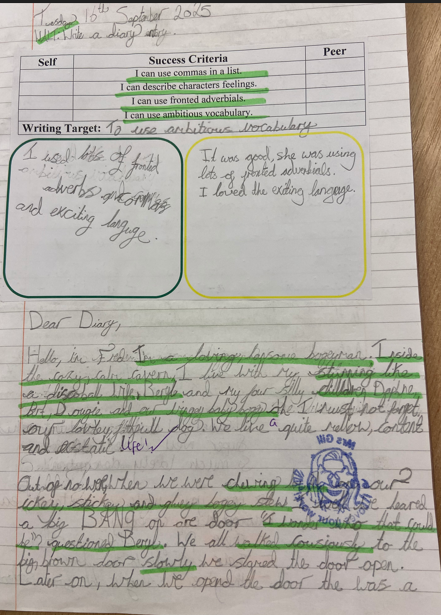 Tuesday 10th September 2025
WALT: Write a diary entry.
Self Success Criteria Peer
I can use commas in a list.
I can describe characters feelings.
I can use fronted adverbials.
I can use ambitious vocabulary.
Writing Target: To use ambitious vocabulary
I used lots of fronted
adverbs and commas
and exciting languge.
It was good, she was using
lots of fronted adverbials.
I loved the exiting langage.
Dear Diary,
Hallo, im Fred. Im a loving, bogeyman. Inside
the cozy calm cavern, I live with my stinning like
a discoball wife, Beryl and my four silly children
and our baby I must not forget
our lovley dog. We live a quite relow, content
and ecstatic life!
Out of nowere, when we were chewing our
ickey, stickey and gluey bogey stew heared
a big BANG on are door. "I wonder that could
be?" questioned Beryl. We all walked cousiously to the
big brown door slowly, we signed the door open.
Later on, when we opend the door the was a
Mrs Gill